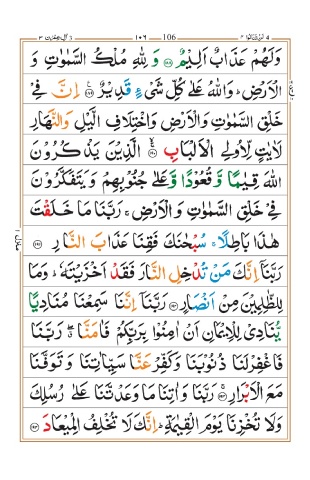 106
وَلَهُمۡ عَذَابٌ اَلِيۡمٌ ﴿۱۸۸﴾ وَلِلّٰهِ مُلۡكُ السَّمٰوٰتِ وَ
الۡاَرۡضِ‌ؕ وَاللّٰهُ عَلٰى كُلِّ شَىۡءٍ قَدِيۡرٌ ﴿۱۸۹﴾ اِنَّ فِىۡ
خَلۡقِ السَّمٰوٰتِ وَالۡاَرۡضِ وَاخۡتِلَافِ الَّيۡلِ وَالنَّهَارِ
لَاٰيٰتٍ لِّاُولِى الۡاَلۡبَابِ ﴿۱۹۰﴾ الَّذِيۡنَ يَذۡكُرُوۡنَ
اللّٰهَ قِيٰمًا وَّقُعُوۡدًا وَّعَلٰى جُنُوۡبِهِمۡ وَيَتَفَكَّرُوۡنَ
فِىۡ خَلۡقِ السَّمٰوٰتِ وَالۡاَرۡضِ‌ۚ رَبَّنَا مَا خَلَقۡتَ
هٰذَا بَاطِلًا ‌ۚ سُبۡحٰنَكَ فَقِنَا عَذَابَ النَّارِ ﴿۱۹۱﴾
رَبَّنَاۤ اِنَّكَ مَنۡ تُدۡخِلِ النَّارَ فَقَدۡ اَخۡزَيۡتَهٗ ‌ؕ وَمَا
لِلظّٰلِمِيۡنَ مِنۡ اَنۡصَارٍ ﴿۱۹۲﴾ رَبَّنَاۤ اِنَّنَا سَمِعۡنَا مُنَادِيًا
يُّنَادِىۡ لِلۡاِيۡمَانِ اَنۡ اٰمِنُوۡا بِرَبِّكُمۡ فَاٰمَنَّا ‌ۖ رَبَّنَا
فَاغۡفِرۡ لَنَا ذُنُوۡبَنَا وَكَفِّرۡ عَنَّا سَيِّاٰتِنَا وَتَوَفَّنَا
مَعَ الۡاَبۡرَارِ‌ۚ ﴿۱۹۳﴾ رَبَّنَا وَاٰتِنَا مَا وَعَدْتَّنَا عَلٰى رُسُلِكَ
وَلَا تُخۡزِنَا يَوۡمَ الۡقِيٰمَةِ ‌ؕ اِنَّكَ لَا تُخۡلِفُ الۡمِيۡعَادَ ﴿۱۹۴﴾